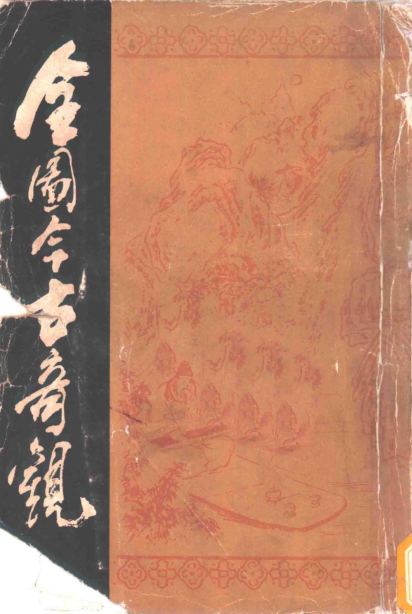 全圖今古奇觀